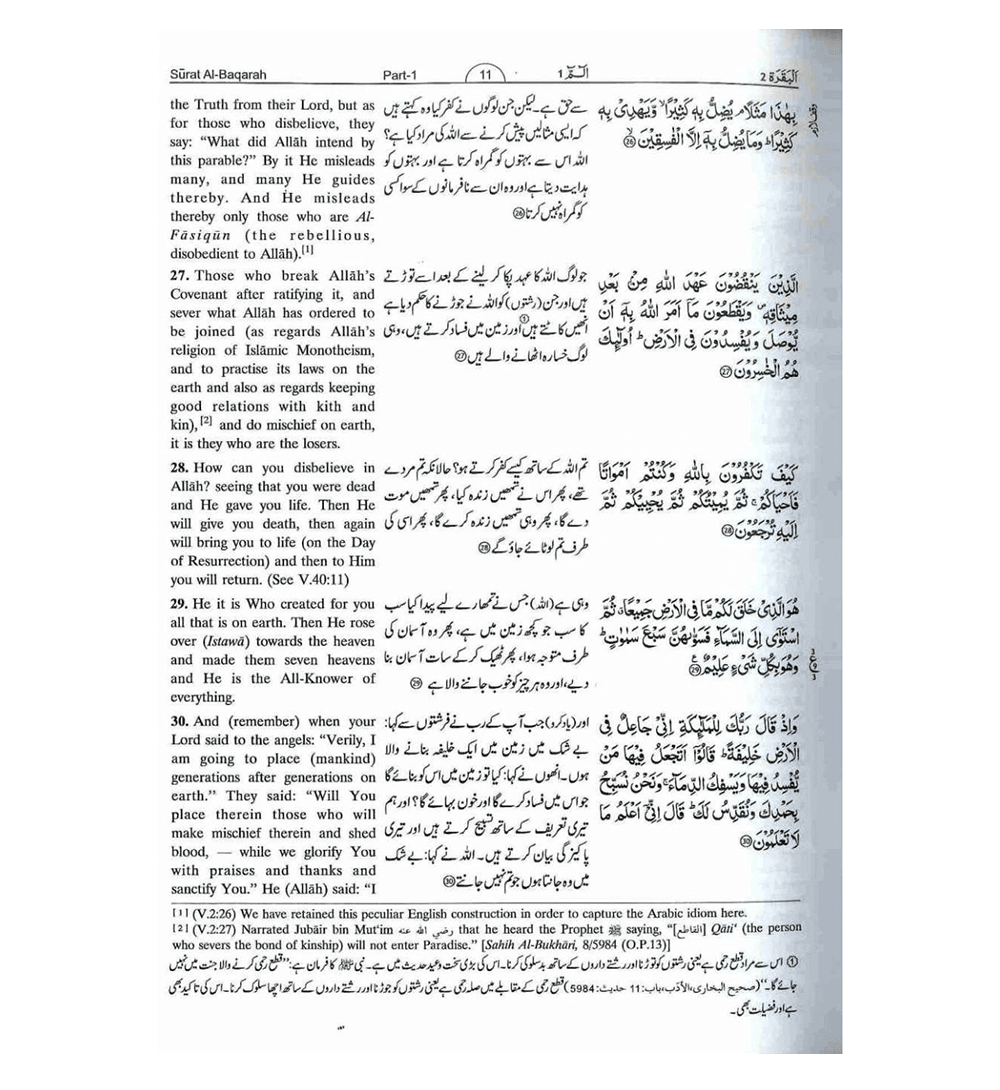 Sūrat Al-Baqarah Part-1 11 الٓمّٓ 1 اَلْبَقَرَة 2
the Truth from their Lord, but as
for those who disbelieve, they
say: “What did Allāh intend by
this parable?” By it He misleads
many, and many He guides
thereby. And He misleads
thereby only those who are Al-
Fāsiqūn (the rebellious,
disobedient to Allāh).[1]
27. Those who break Allāh’s
Covenant after ratifying it, and
sever what Allāh has ordered to
be joined (as regards Allāh’s
religion of Islāmic Monotheism,
and to practise its laws on the
earth and also as regards keeping
good relations with kith and
kin),[2] and do mischief on earth,
it is they who are the losers.
28. How can you disbelieve in
Allāh? seeing that you were dead
and He gave you life. Then He
will give you death, then again
will bring you to life (on the Day
of Resurrection) and then to Him
you will return. (See V.40:11)
29. He it is Who created for you
all that is on earth. Then He rose
over (Istawā) towards the heaven
and made them seven heavens
and He is the All-Knower of
everything.
30. And (remember) when your
Lord said to the angels: “Verily, I
am going to place (mankind)
generations after generations on
earth.” They said: “Will You
place therein those who will
make mischief therein and shed
blood, — while we glorify You
with praises and thanks and
sanctify You.” He (Allāh) said: “I
سے حق ہے۔ لیکن جن لوگوں نے کفر کیا وہ کہتے ہیں
کہ ایسی مثالیں پیش کرنے سے اللہ کی مراد کیا ہے؟
اللہ اس سے بہتوں کو گمراہ کرتا ہے اور بہتوں کو
ہدایت دیتا ہے اور وہ ان سے نافرمانوں کے سوا کسی
کو گمراہ نہیں کرتا ㉖
جو لوگ اللہ کا عہد پکا کر لینے کے بعد اسے توڑتے
ہیں اور جن (رشتوں) کو اللہ نے جوڑنے کا حکم دیا ہے
انھیں کاٹتے ہیں ① اور زمین میں فساد کرتے ہیں، وہی
لوگ خسارہ اٹھانے والے ہیں ㉗
تم اللہ کے ساتھ کیسے کفر کرتے ہو؟ حالانکہ تم مردے
تھے، پھر اس نے تمھیں زندہ کیا، پھر تمھیں موت
دے گا، پھر وہی تمھیں زندہ کرے گا، پھر اسی کی
طرف تم لوٹائے جاؤ گے ㉘
وہی ہے (اللہ) جس نے تمھارے لیے پیدا کیا سب
کا سب جو کچھ زمین میں ہے، پھر وہ آسمان کی
طرف متوجہ ہوا، پھر ٹھیک کر کے سات آسمان بنا
دیے، اور وہ ہر چیز کو خوب جاننے والا ہے ㉙
اور (یاد کرو) جب آپ کے رب نے فرشتوں سے کہا:
بے شک میں زمین میں ایک خلیفہ بنانے والا
ہوں۔ انھوں نے کہا: کیا تو زمین میں اس کو بنائے گا
جو اس میں فساد کرے گا اور خون بہائے گا؟ اور ہم
تیری تعریف کے ساتھ تسبیح کرتے ہیں اور تیری
پاکیزگی بیان کرتے ہیں۔ اللہ نے کہا: بے شک
میں وہ جانتا ہوں جو تم نہیں جانتے ㉚
بِهٰذَا مَثَلًا ۘ يُضِلُّ بِهٖ كَثِيْرًا ۙ وَّيَهْدِىْ بِهٖ
كَثِيْرًا ؕ وَمَا يُضِلُّ بِهٖٓ اِلَّا الْفٰسِقِيْنَ ۙ ㉖
الَّذِيْنَ يَنْقُضُوْنَ عَهْدَ اللّٰهِ مِنْۢ بَعْدِ
مِيْثَاقِهٖ ۪ وَيَقْطَعُوْنَ مَآ اَمَرَ اللّٰهُ بِهٖٓ اَنْ
يُّوْصَلَ وَيُفْسِدُوْنَ فِى الْاَرْضِ ؕ اُولٰٓئِكَ
هُمُ الْخٰسِرُوْنَ ㉗
كَيْفَ تَكْفُرُوْنَ بِاللّٰهِ وَكُنْتُمْ اَمْوَاتًا
فَاَحْيَاكُمْ ۚ ثُمَّ يُمِيْتُكُمْ ثُمَّ يُحْيِيْكُمْ ثُمَّ
اِلَيْهِ تُرْجَعُوْنَ ㉘
هُوَ الَّذِىْ خَلَقَ لَكُمْ مَّا فِى الْاَرْضِ جَمِيْعًا ۗ ثُمَّ
اسْتَوٰٓى اِلَى السَّمَآءِ فَسَوّٰىهُنَّ سَبْعَ سَمٰوٰتٍ ؕ
وَهُوَ بِكُلِّ شَىْءٍ عَلِيْمٌ ㉙
وَاِذْ قَالَ رَبُّكَ لِلْمَلٰٓئِكَةِ اِنِّىْ جَاعِلٌ فِى
الْاَرْضِ خَلِيْفَةً ؕ قَالُوْٓا اَتَجْعَلُ فِيْهَا مَنْ
يُّفْسِدُ فِيْهَا وَيَسْفِكُ الدِّمَآءَ ۚ وَنَحْنُ نُسَبِّحُ
بِحَمْدِكَ وَنُقَدِّسُ لَكَ ؕ قَالَ اِنِّىْٓ اَعْلَمُ مَا
لَا تَعْلَمُوْنَ ㉚
[1] (V.2:26) We have retained this peculiar English construction in order to capture the Arabic idiom here.
[2] (V.2:27) Narrated Jubāir bin Mut'im رضي الله عنه that he heard the Prophet ﷺ saying, “[القاطع] Qāti' (the person
who severs the bond of kinship) will not enter Paradise.” [Sahih Al-Bukhāri, 8/5984 (O.P.13)]
① اس سے مراد قطع رحمی ہے یعنی رشتوں کو توڑنا اور رشتے داروں کے ساتھ بدسلوکی کرنا۔ اس کی بڑی سخت وعید حدیث میں ہے۔ نبی ﷺ کا فرمان ہے: ”قطع رحمی کرنے والا جنت میں نہیں
جائے گا۔“ (صحیح البخاری، الأدب، باب: 11 حدیث: 5984) قطع رحمی کے مقابلے میں صلہ رحمی ہے یعنی رشتوں کو جوڑنا اور رشتے داروں کے ساتھ اچھا سلوک کرنا۔ اس کی تاکید بھی
ہے اور فضیلت بھی۔